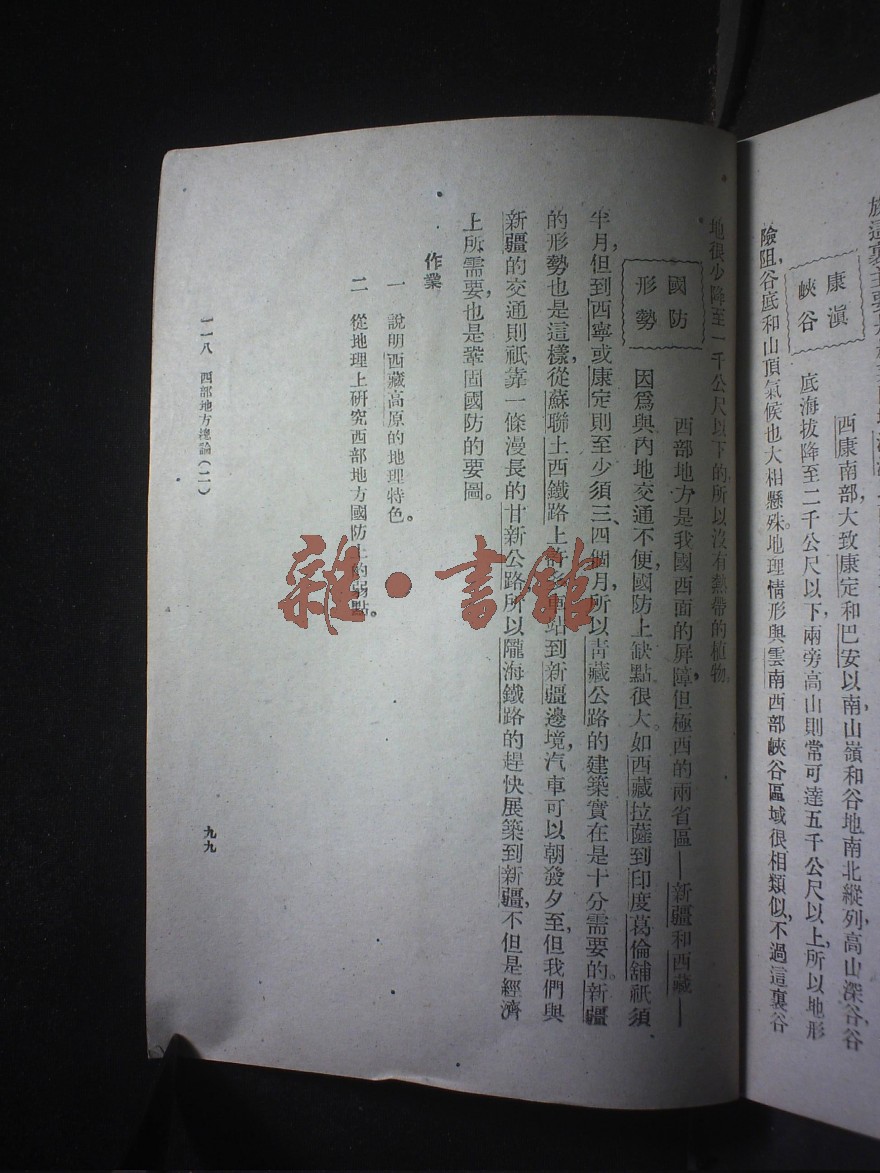 康滇
峽谷
西康南部，大致康定和巴安以南，山嶺和谷地南北縱列，高山深谷，谷
底海拔降至二千公尺以下，兩旁高山則常可達五千公尺以上，所以地形
險阻，谷底和山頂氣候也大相懸殊。地理情形與雲南西部峽谷區域很相類似，不過這裏谷
地很少降至一千公尺以下的，所以沒有熱帶的植物。
國防
形勢
西部地方是我國西面的屏障，但極西的兩省區—新疆和西藏—
因爲與內地交通不便，國防上缺點很大。如西藏拉薩到印度葛倫舖祇須
半月，但到西寧或康定則至少須三、四個月，所以青藏公路的建築實在是十分需要的。新疆
的形勢也是這樣，從蘇聯土西鐵路上許多車站到新疆邊境，汽車可以朝發夕至，但我們與
新疆的交通則祇靠一條漫長的甘新公路，所以隴海鐵路的趕快展築到新疆，不但是經濟
上所需要，也是鞏固國防的要圖。
作業
一 說明西藏高原的地理特色。
二 從地理上研究西部地方國防上的弱點。
一一八 西部地方總論（二）
九九
雜·書館